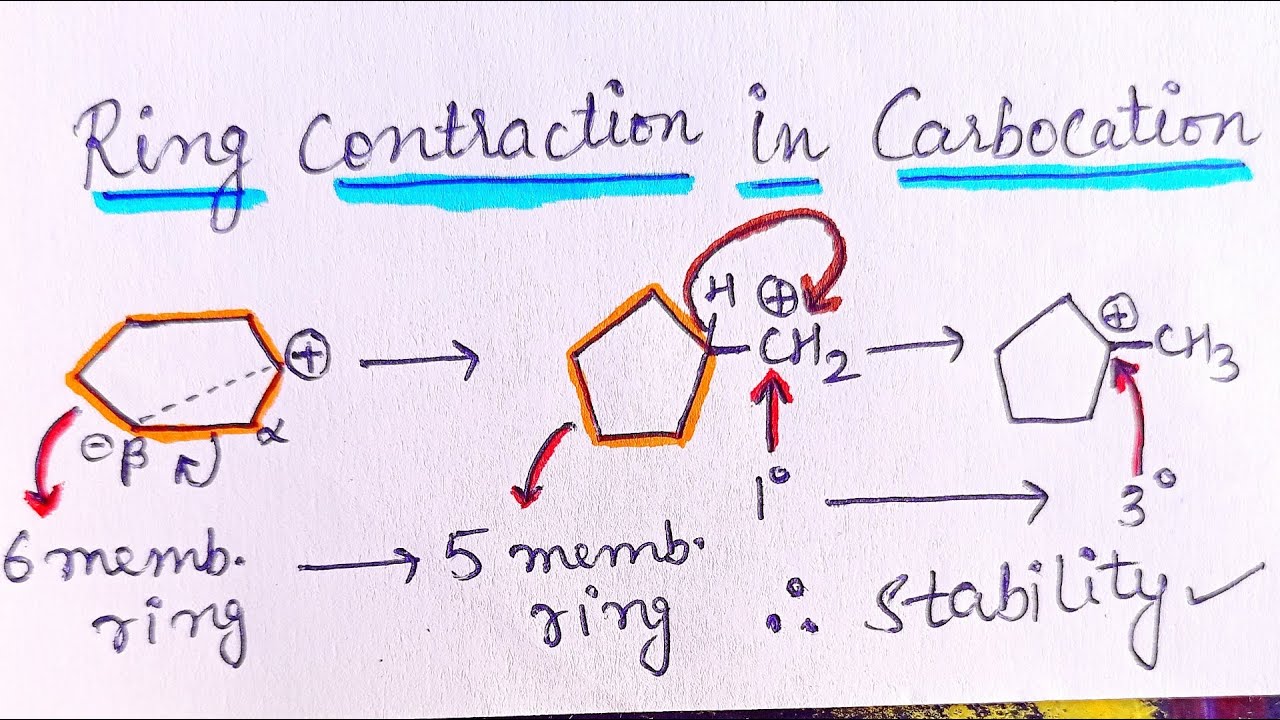 Ring Contraction in Carbocation
⊕ → H ⊕ CH₂ → ⊕ CH₃
⊖ β α
1° → 3°
6 memb. ring → 5 memb. ring ∴ Stability ✓